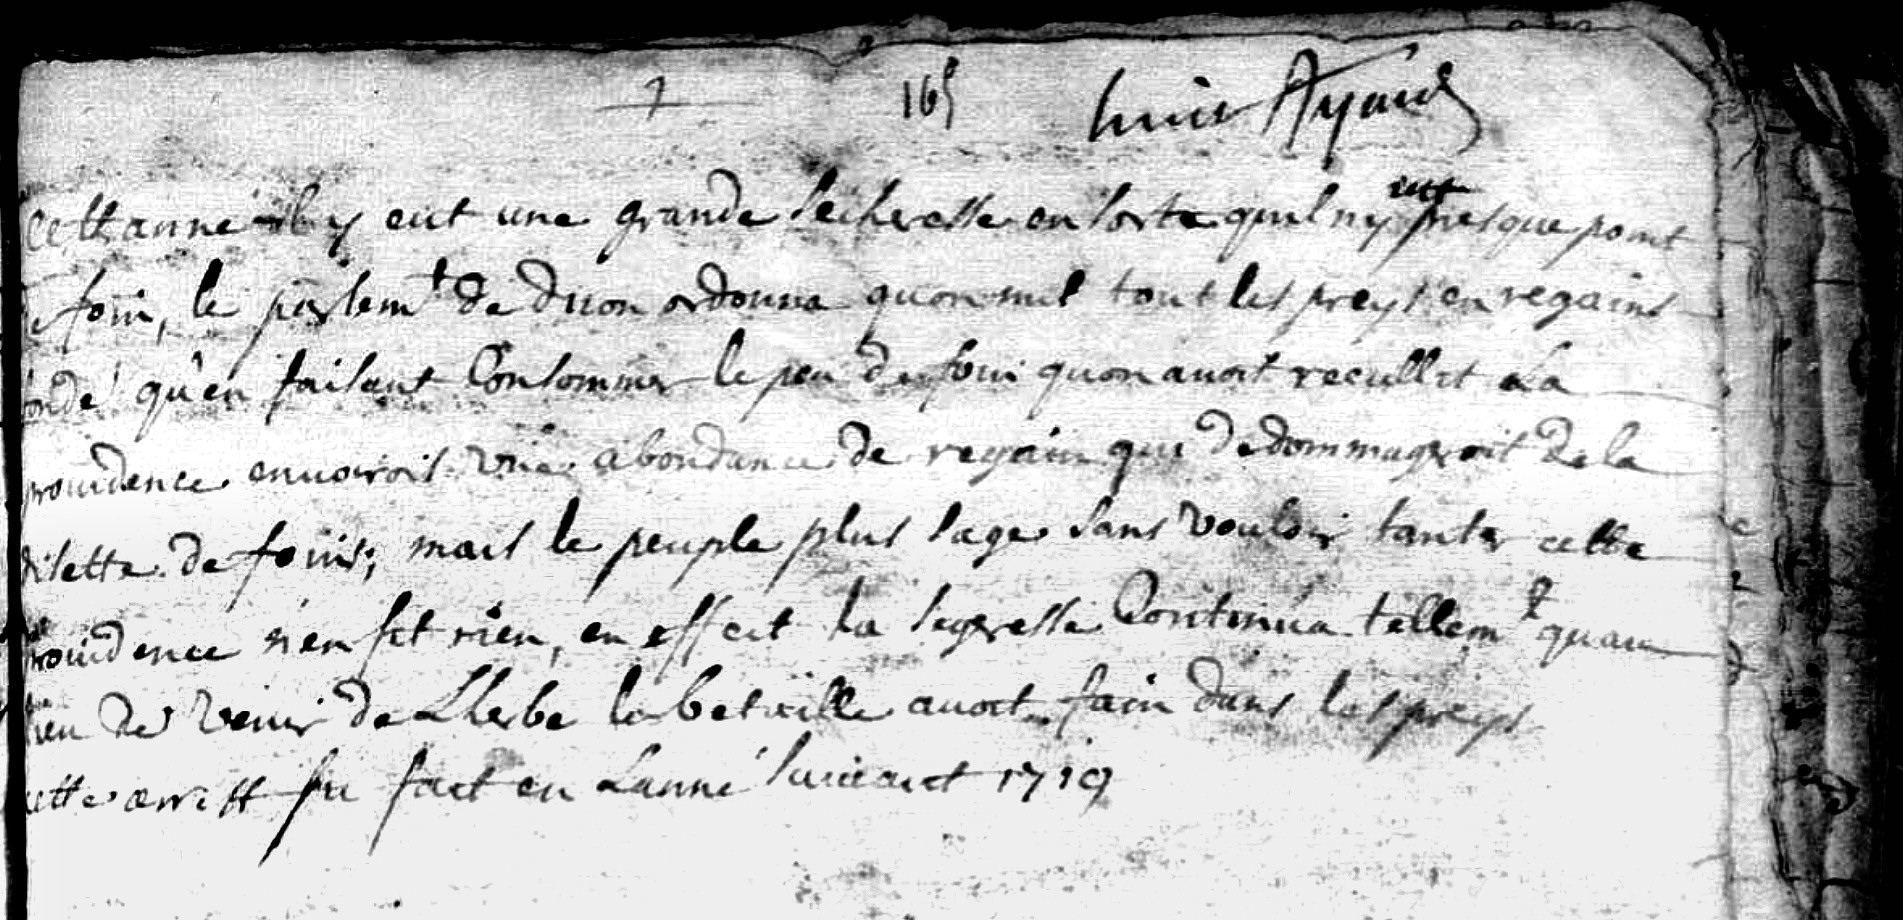 7 165
cette anné il y eut une grande secheresse en sorte quil ny eut presque point
de foin, le parlemt de diion ordonna quon mit tout les preys en regains
fondé qu'en faisant Consommer le peu de foin quon auoit recullit La
prouidence enuoiroit vne abondance de regain qui dedommageroit de la
disette de foins; mais le peuple plus sage sans vouloir tanter cette
prouidence n'en fit rien, en effect la segeresse Continua tellemt quau
lieu de venir de Lherbe la betaille auoit fain dans les preys
cette arrest fu fait en Lanné suiuant 1719